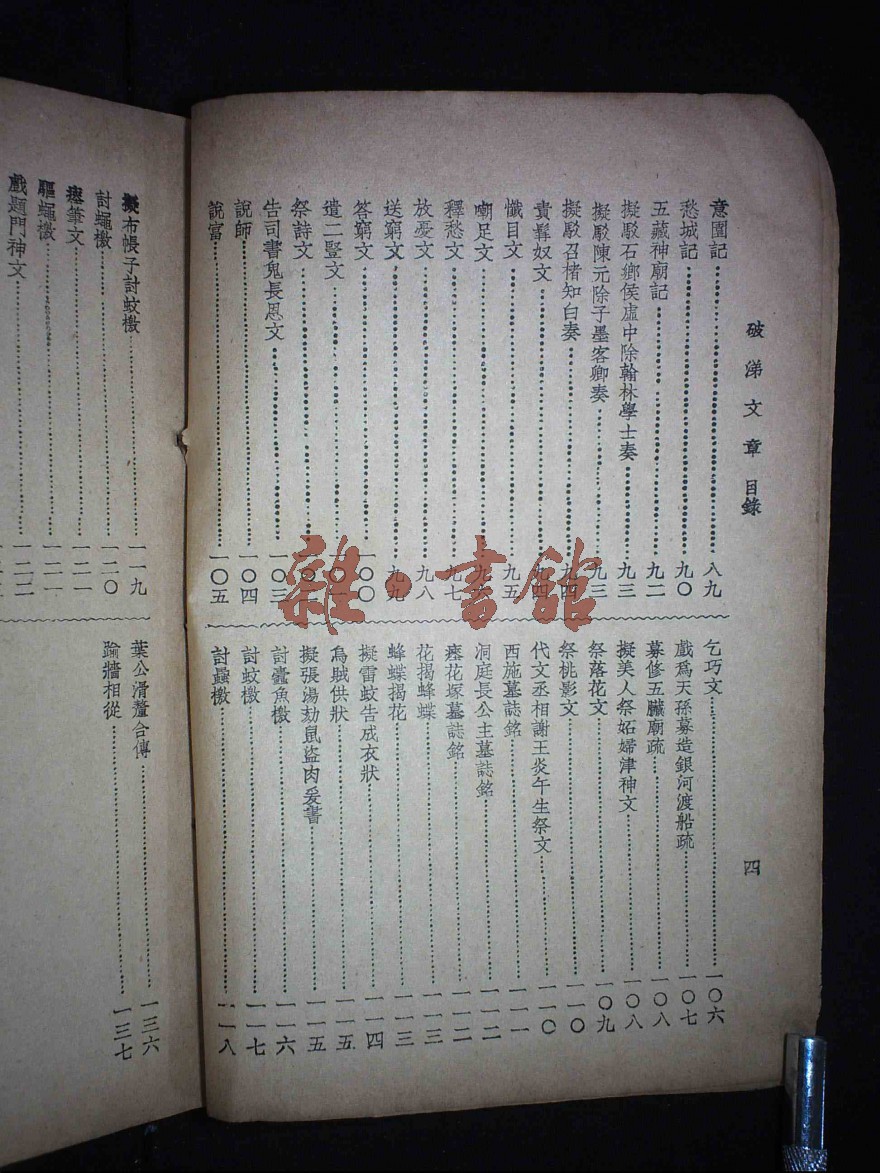 破涕文章 目錄
四
意園記……八九
愁城記……九〇
五藏神廟記……九二
擬駁石鄉侯虛中除翰林學士奏……九三
擬駁陳元除子墨客卿奏……九三
擬駁召楮知白奏……九四
責髯奴文……九四
懺目文……九五
嘲足文……九六
釋愁文……九七
放憂文……九八
送窮文……九九
答窮文……一〇〇
遣二豎文……一〇一
祭詩文……一〇二
告司書鬼長恩文……一〇三
說師……一〇四
說富……一〇五
乞巧文……一〇六
戲爲天孫募造銀河渡船疏……一〇七
募修五臟廟疏……一〇八
擬美人祭妬婦津神文……一〇八
祭落花文……一〇九
祭桃影文……一一〇
代文丞相謝王炎午生祭文……一一〇
西施墓誌銘……一一一
洞庭長公主墓誌銘……一一二
瘞花塚墓誌銘……一一二
花揭蜂蝶……一一三
蜂蝶揭花……一一三
擬雷蚊告成衣狀……一一四
烏賊供狀……一一五
擬張湯劾鼠盜肉爰書……一一五
討蠹魚檄……一一六
討蚊檄……一一七
討蝨檄……一一八
擬布帳子討蚊檄……一一九
討蠅檄……一二〇
瘞筆文……一二一
驅蠅檄……一二一
戲題門神文……一二二
葉公滑釐合傳……一三六
踰牆相從……一三七
雜·書館